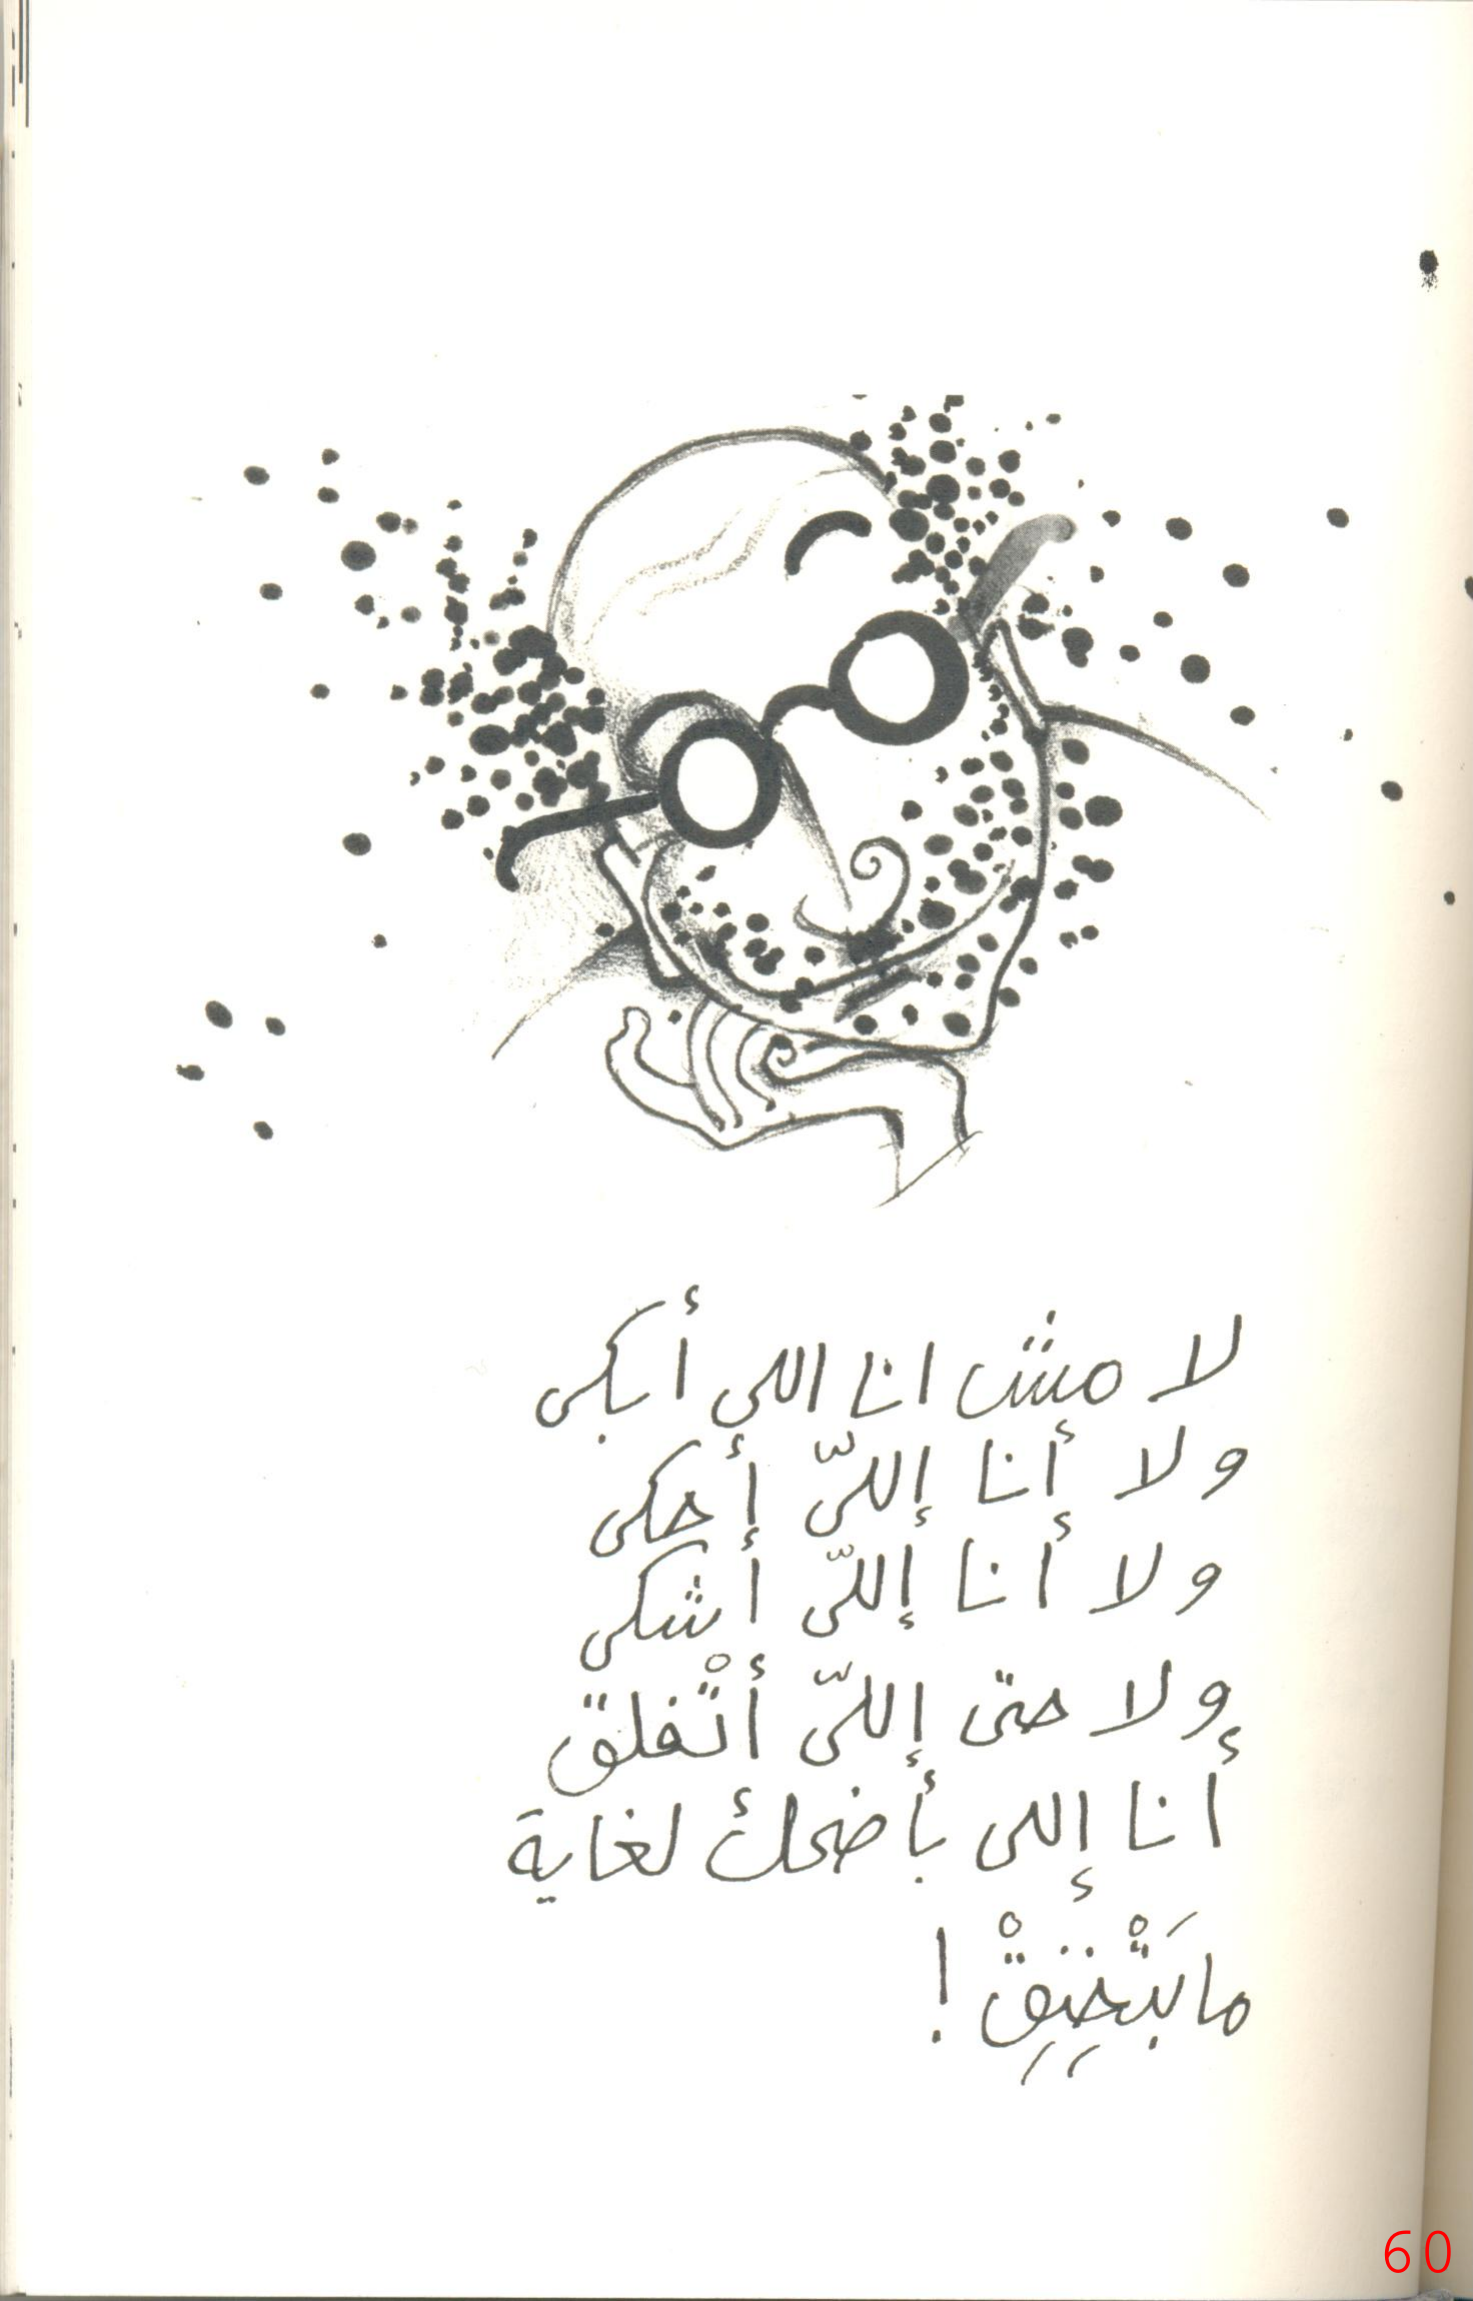 لا مش انا اللى أبكى
ولا أنا إللىّ أحكى
ولا أنا إللىّ أشكى
ولا حتى إللىّ أتْفلق
أنا إللى بأضحك لغاية
مابَتْخنِقِْ !
60